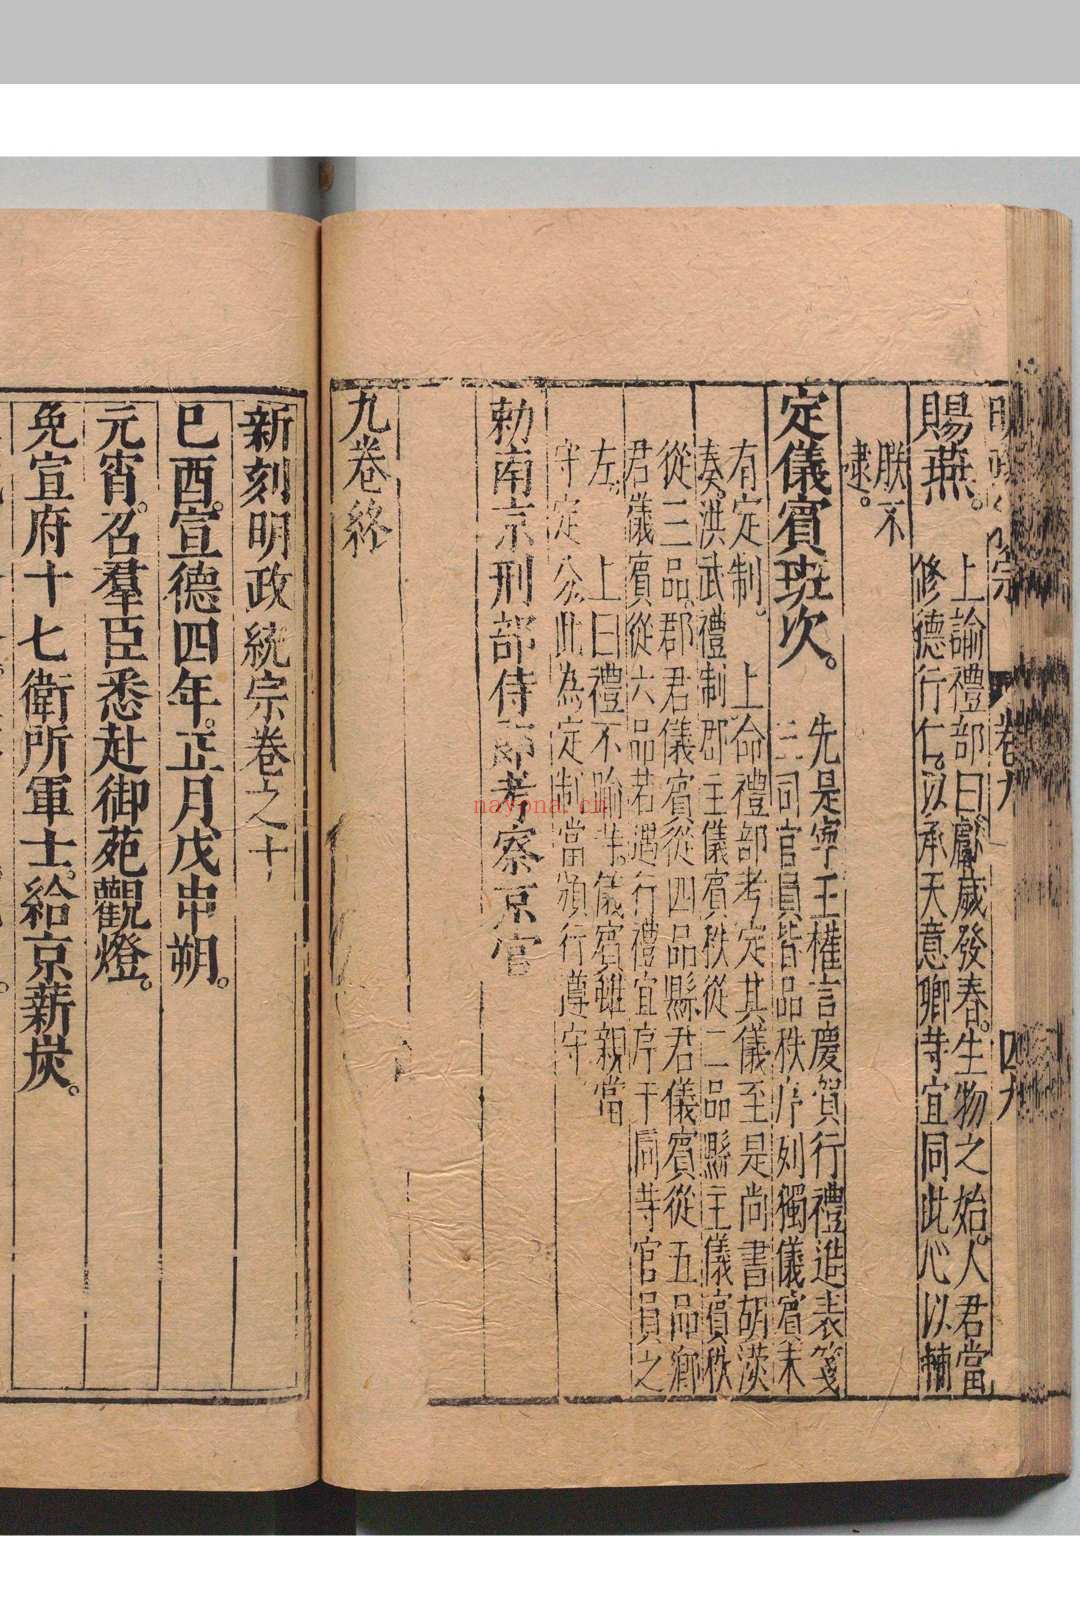 賜燕。
上諭禮部曰獻歲發春。生物之始。人君當
修德行仁。以承天意卿等宜同此心以輔
朕不
逮。
定儀賓班次。
先是寧王權言慶賀行禮進表箋
三司官員皆品秩序列獨儀賓未
有定制。 上命禮部考定其儀至是尚書胡濙
奏。洪武禮制郡主儀賓秩從二品縣主儀賓秩
從三品。郡君儀賓從四品縣君儀賓從五品鄉
君儀賓從六品若遇行禮宜序于同等官員之
左。 上曰禮不踰等。儀賓雖親當
守定分此為定制當頒行遵守
勅南京刑部侍郎考察京官
九卷終
卷九
四九
新刻明政統宗卷之十
巳酉。宣德四年。正月戊申朔。
元宵。召羣臣悉赴御苑觀燈。
免宣府十七衛所軍士。給京薪炭。
nayona.cn